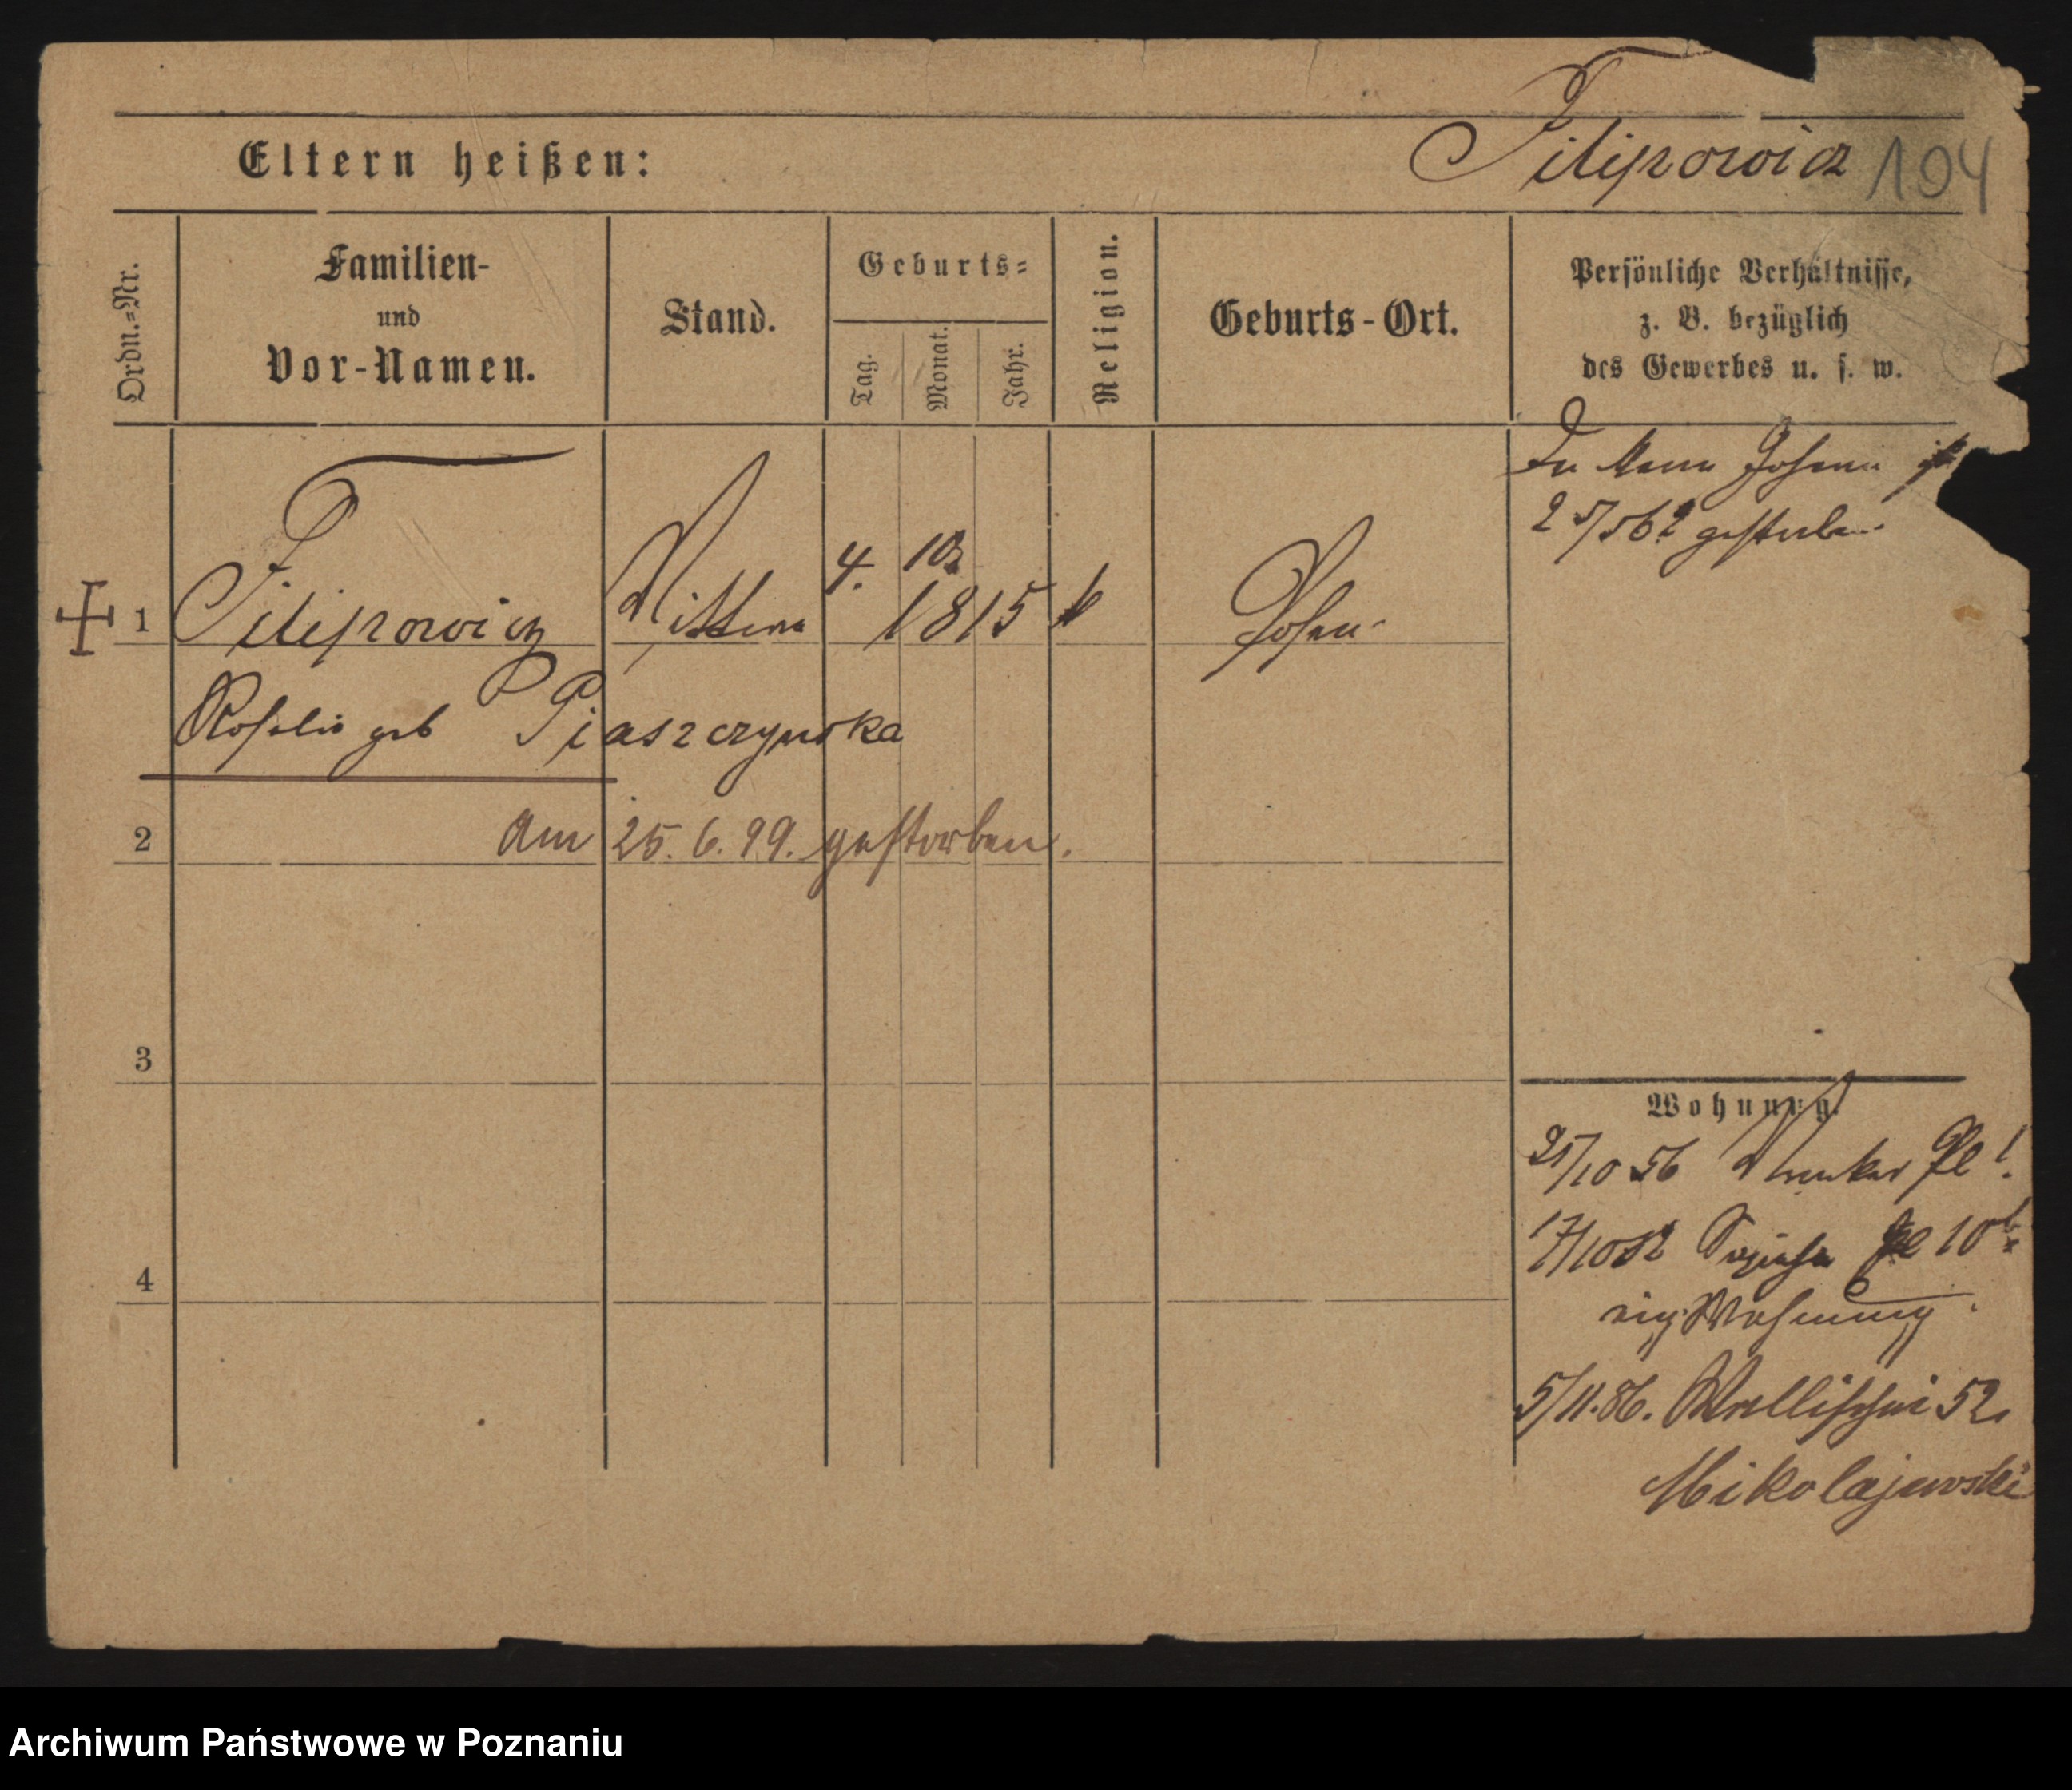 Filipowicz 104
Eltern heißen:
Ordn.-Nr.
Familien-
und
Vor-Namen.
Stand.
Geburts-
Tag.
Monat.
Jahr.
Religion.
Geburts-Ort.
Persönliche Verhältnisse,
z. B. bezüglich
des Gewerbes u. s. w.
Mann Johann ist
gestorben
1 Filipowicz Wittwe 4. 10. 1815 k Posen
Rosalie geb Piaszczynska
2 am 25. 6. 99. gestorben.
3
4
Wohnung.
21/10 56 Pl 1.
17/10 Sapieha Pl 10b
eig Wohnung
5/11. 86. Wallischei 52.
Mikolajewski
Archiwum Państwowe w Poznaniu